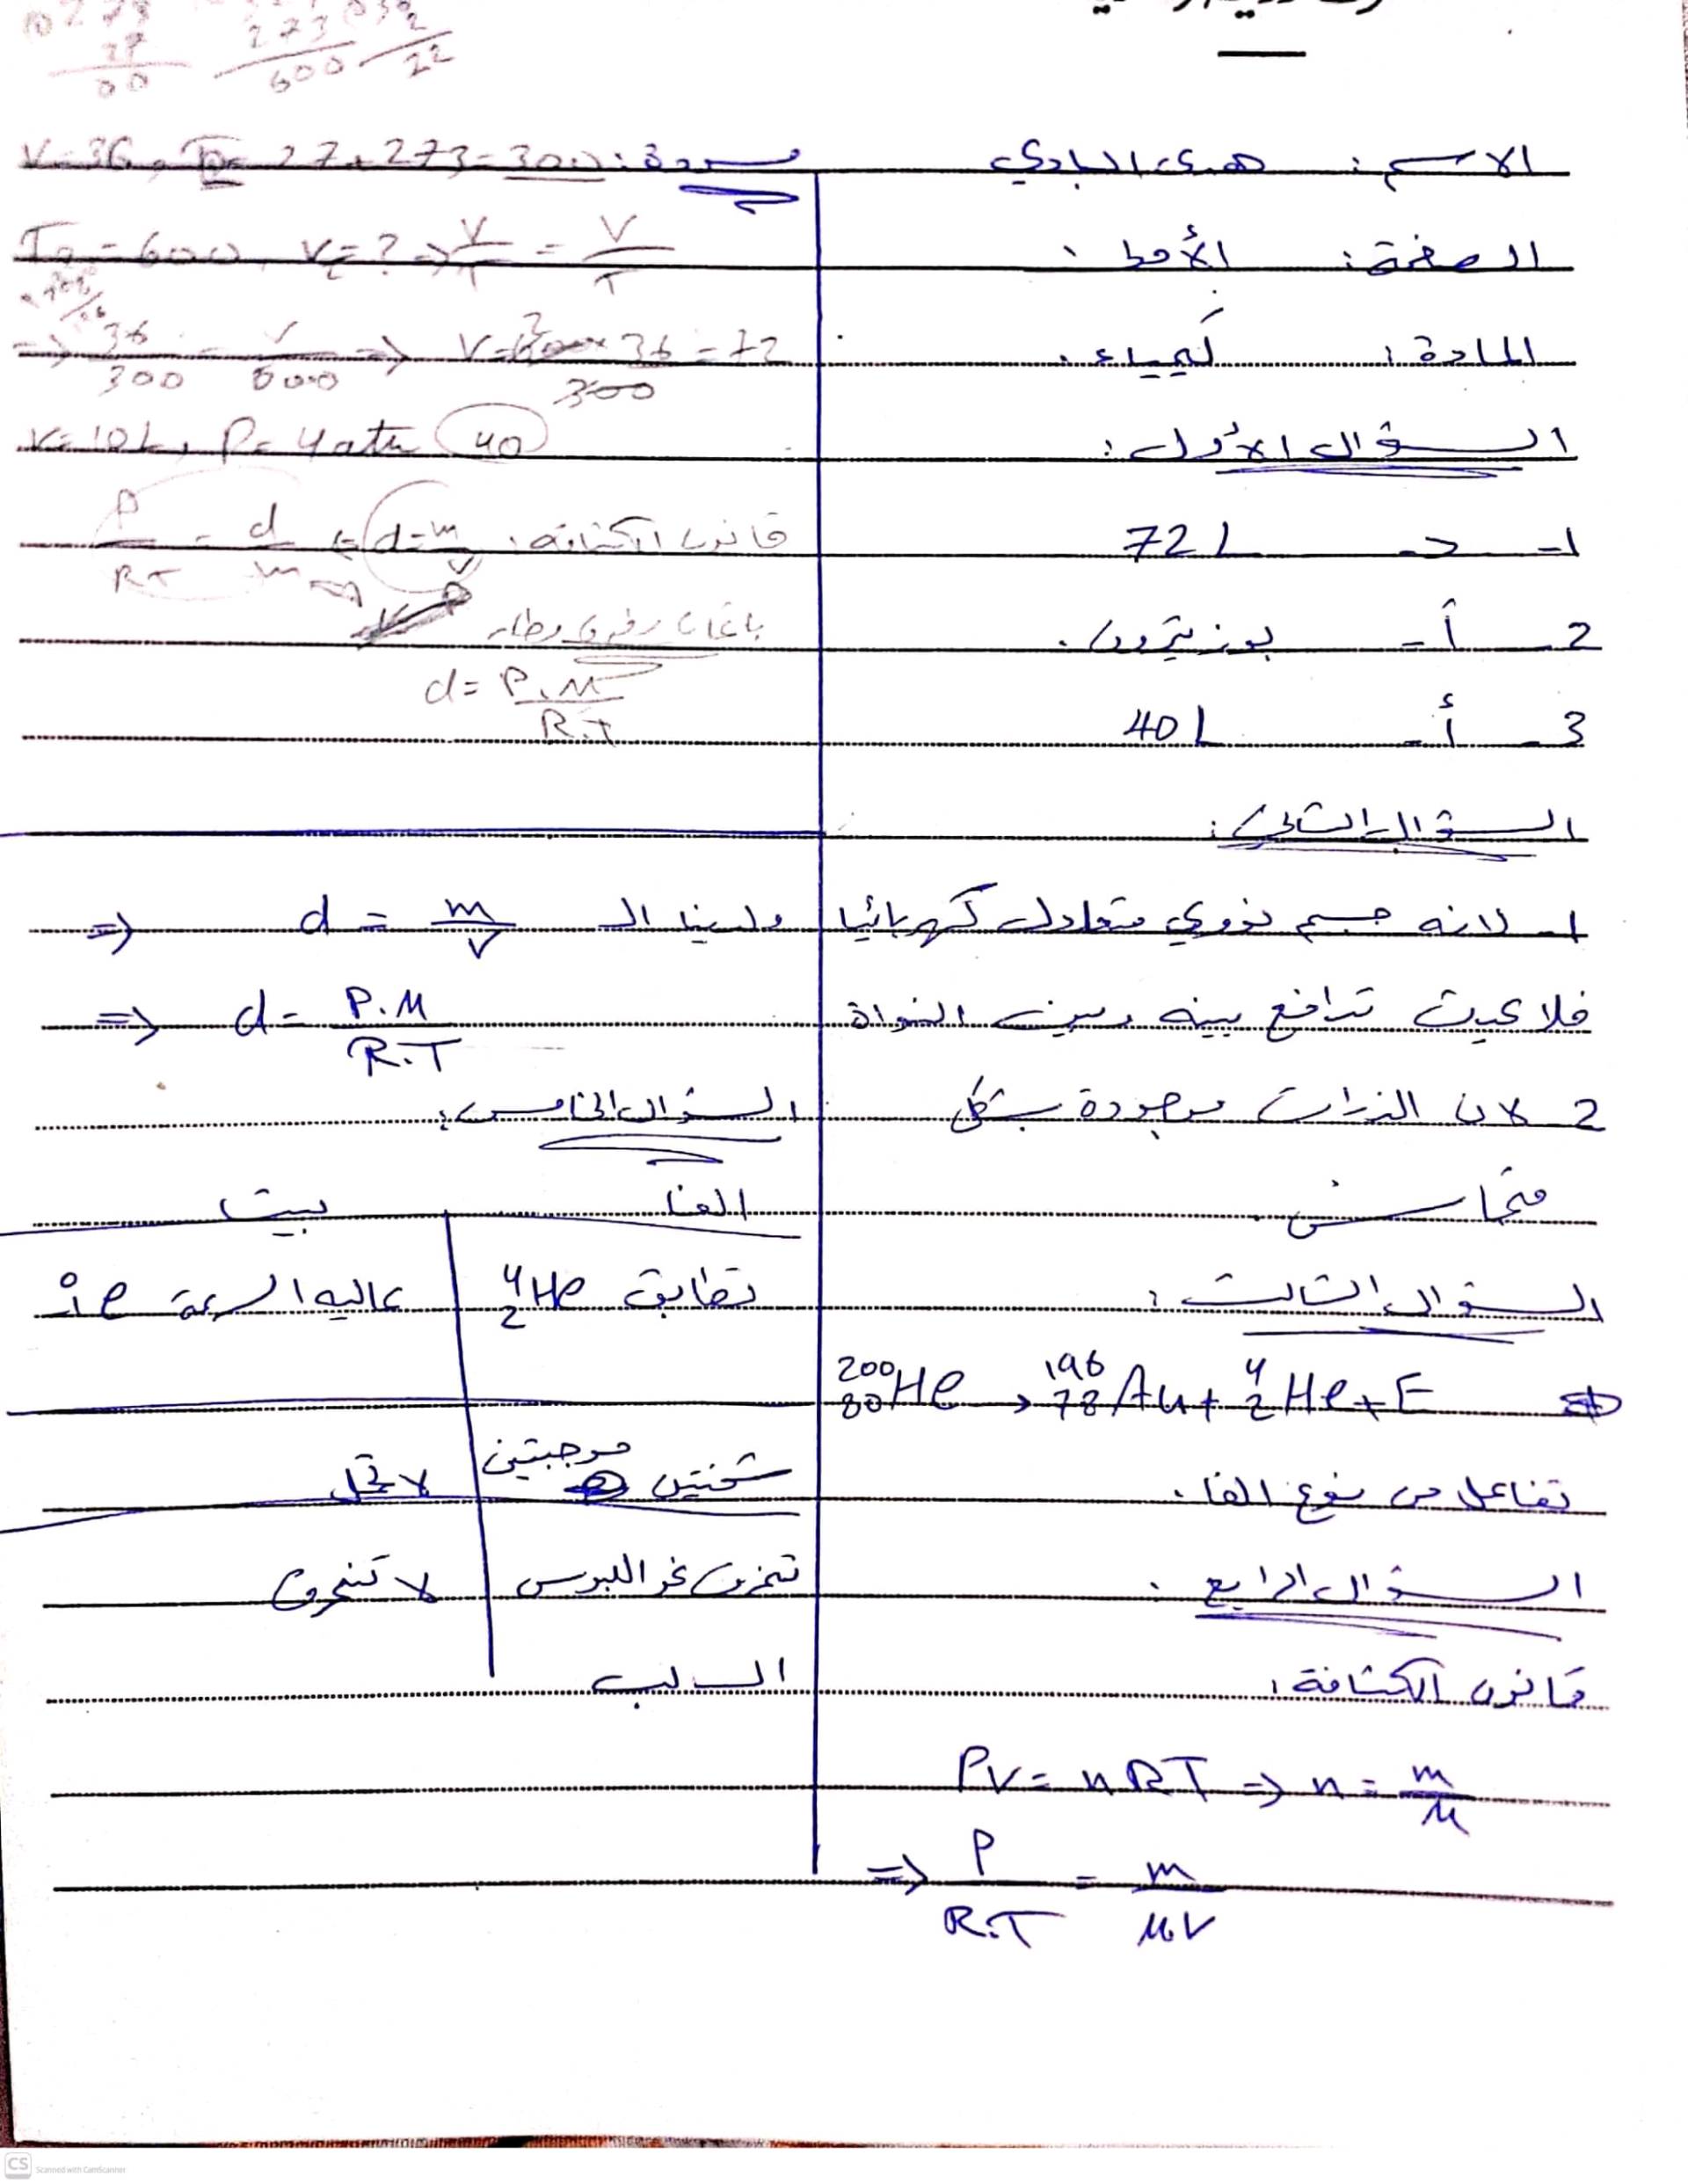 الاسم: هدى البادي
الصفحة: الأولى
المادة: كيمياء.
السؤال الأول:
1- ح- 72 L
2- أ- بوزيترون.
3- أ- 40 L
السؤال الثاني:
1- لانه جسم نووي متعادل كهربائيا
فلا يحدث تدافع بينه وبين النواة
2- لان الذرات موجودة بشكل
متجانس
السؤال الثالث:
²⁰⁰₈₀He → ¹⁹⁶₇₈Au + ⁴₂He + E
تفاعل من نوع الفا.
السؤال الرابع:
قانون الكثافة:
PV = nRT ⇒ n = m/M
⇒ P/R.T = m/M.V
27
273
600
22
مسودة: V=36, T= 27+273=300
T₂=600, V₂=? ⇒ V/T = V/T
⇒ 36/300 = V/600 ⇒ V= 600×36/300 = 72
V=10L, P=4atm 40
قانون الكثافة: d=m/V ⇒ d/m = P/RT
d = P.M/R.T
ولدينا الـ d = m/V ⇒
d = P.M/R.T ⇒
السؤال الخامس:
الفا بيتا
تطابق ⁴₂He عالية السرعة e
شحنتين موجبتين لا تحمل
تنحرف نحو اللبوس لا تنحرف
السالب
CS Scanned with CamScanner